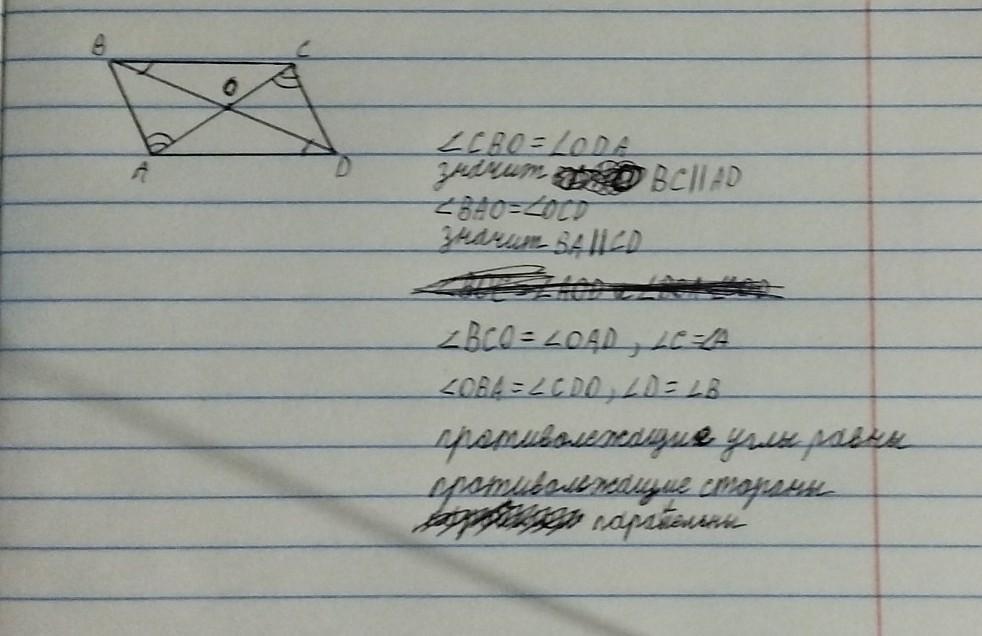 B C
O
A D
∠CBO = ∠ODA
значит BC || AD
∠BAO = ∠OCD
значит BA || CD
∠BCO = ∠OAD, ∠C = ∠A
∠OBA = ∠CDO, ∠D = ∠B
противолежащие углы равны
противолежащие стороны